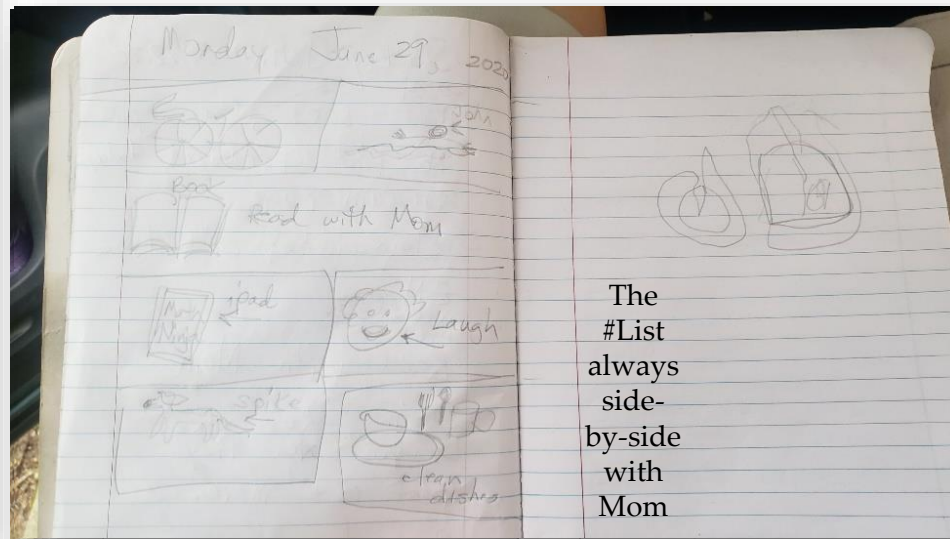 Monday June 29, 2020
John
Book
Read with Mom
ipad
Laugh
spike
clean
dishes
The
#List
always
side-
by-side
with
Mom